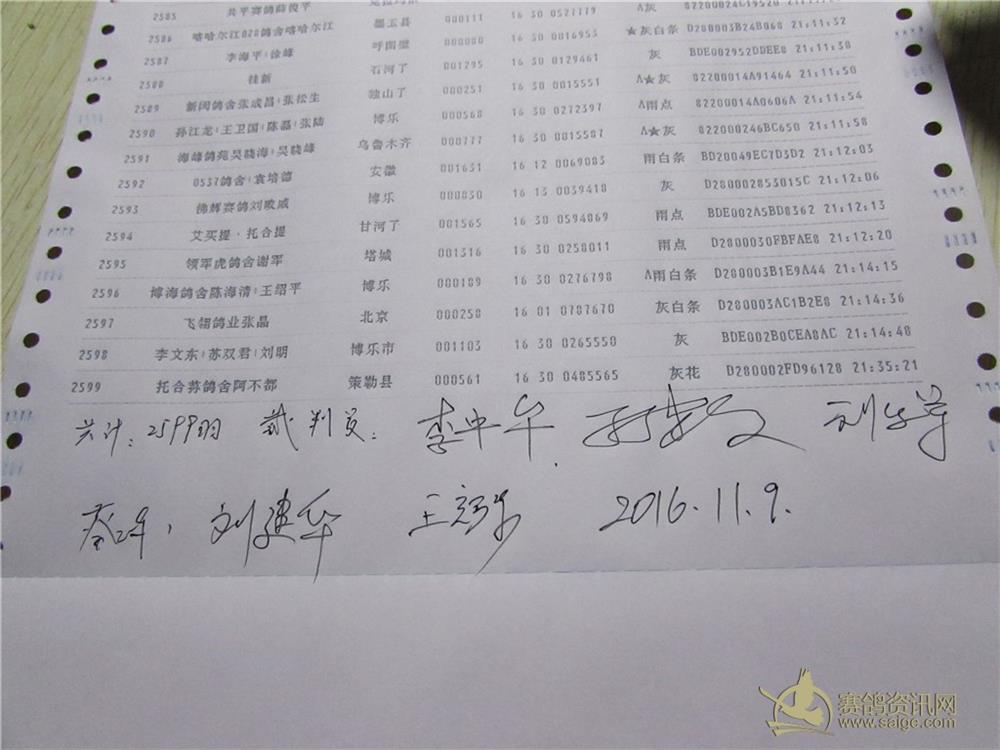 2585 共平赛鸽薛俊平 000111 16 30 0527779 Λ灰
2586 嘻哈尔江028鸽舍嘻哈尔江 墨玉县 000080 16 30 0016953 ★灰白条 D280003B24B068 21:11:32
2587 李海平+徐峰 呼图壁 001295 16 30 0129461 灰 BDE002952DDEE8 21:11:38
2588 桂新 石河子 000251 16 30 0015551 Λ★灰 82200014A91464 21:11:50
2589 新闵鸽舍张成昌+张松生 独山子 000568 16 30 0272397 Λ雨点 82200014A0606A 21:11:54
2590 孙江龙+王卫国+陈磊+张陆 博乐 000777 16 30 0015587 Λ★灰 822000246BC650 21:11:58
2591 海峰鸽苑吴晓海+吴晓峰 乌鲁木齐 001631 16 12 0069083 雨白条 BD20049EC7D3D2 21:12:03
2592 0537鸽舍+袁培德 安徽 000830 16 13 0039418 灰 D280002853015C 21:12:06
2593 佛辉赛鸽刘峻威 博乐 001565 16 30 0594869 雨点 BDE002A5BD8362 21:12:13
2594 艾买提·托合提 甘河子 001316 16 30 0258011 雨点 D2800030FBFAE8 21:12:20
2595 领军虎鸽舍谢军 塔城 000189 16 30 0276798 Λ雨白条 D280003B1E9A44 21:14:15
2596 博海鸽舍陈海清+王绍平 博乐 000258 16 01 0787670 灰白条 D280003AC1B2E8 21:14:36
2597 飞翎鸽业张晶 北京 001103 16 30 0265550 灰 BDE002B0CEA8AC 21:14:48
2598 李文东+苏双君+刘明 博乐市 000561 16 30 0485565 灰花 D280002FD96128 21:35:21
2599 托合荪鸽舍阿不都 策勒县
共计:2599羽 裁判员: 李中华
刘建华 2016.11.9.
赛鸽资讯网
www.saigc.com